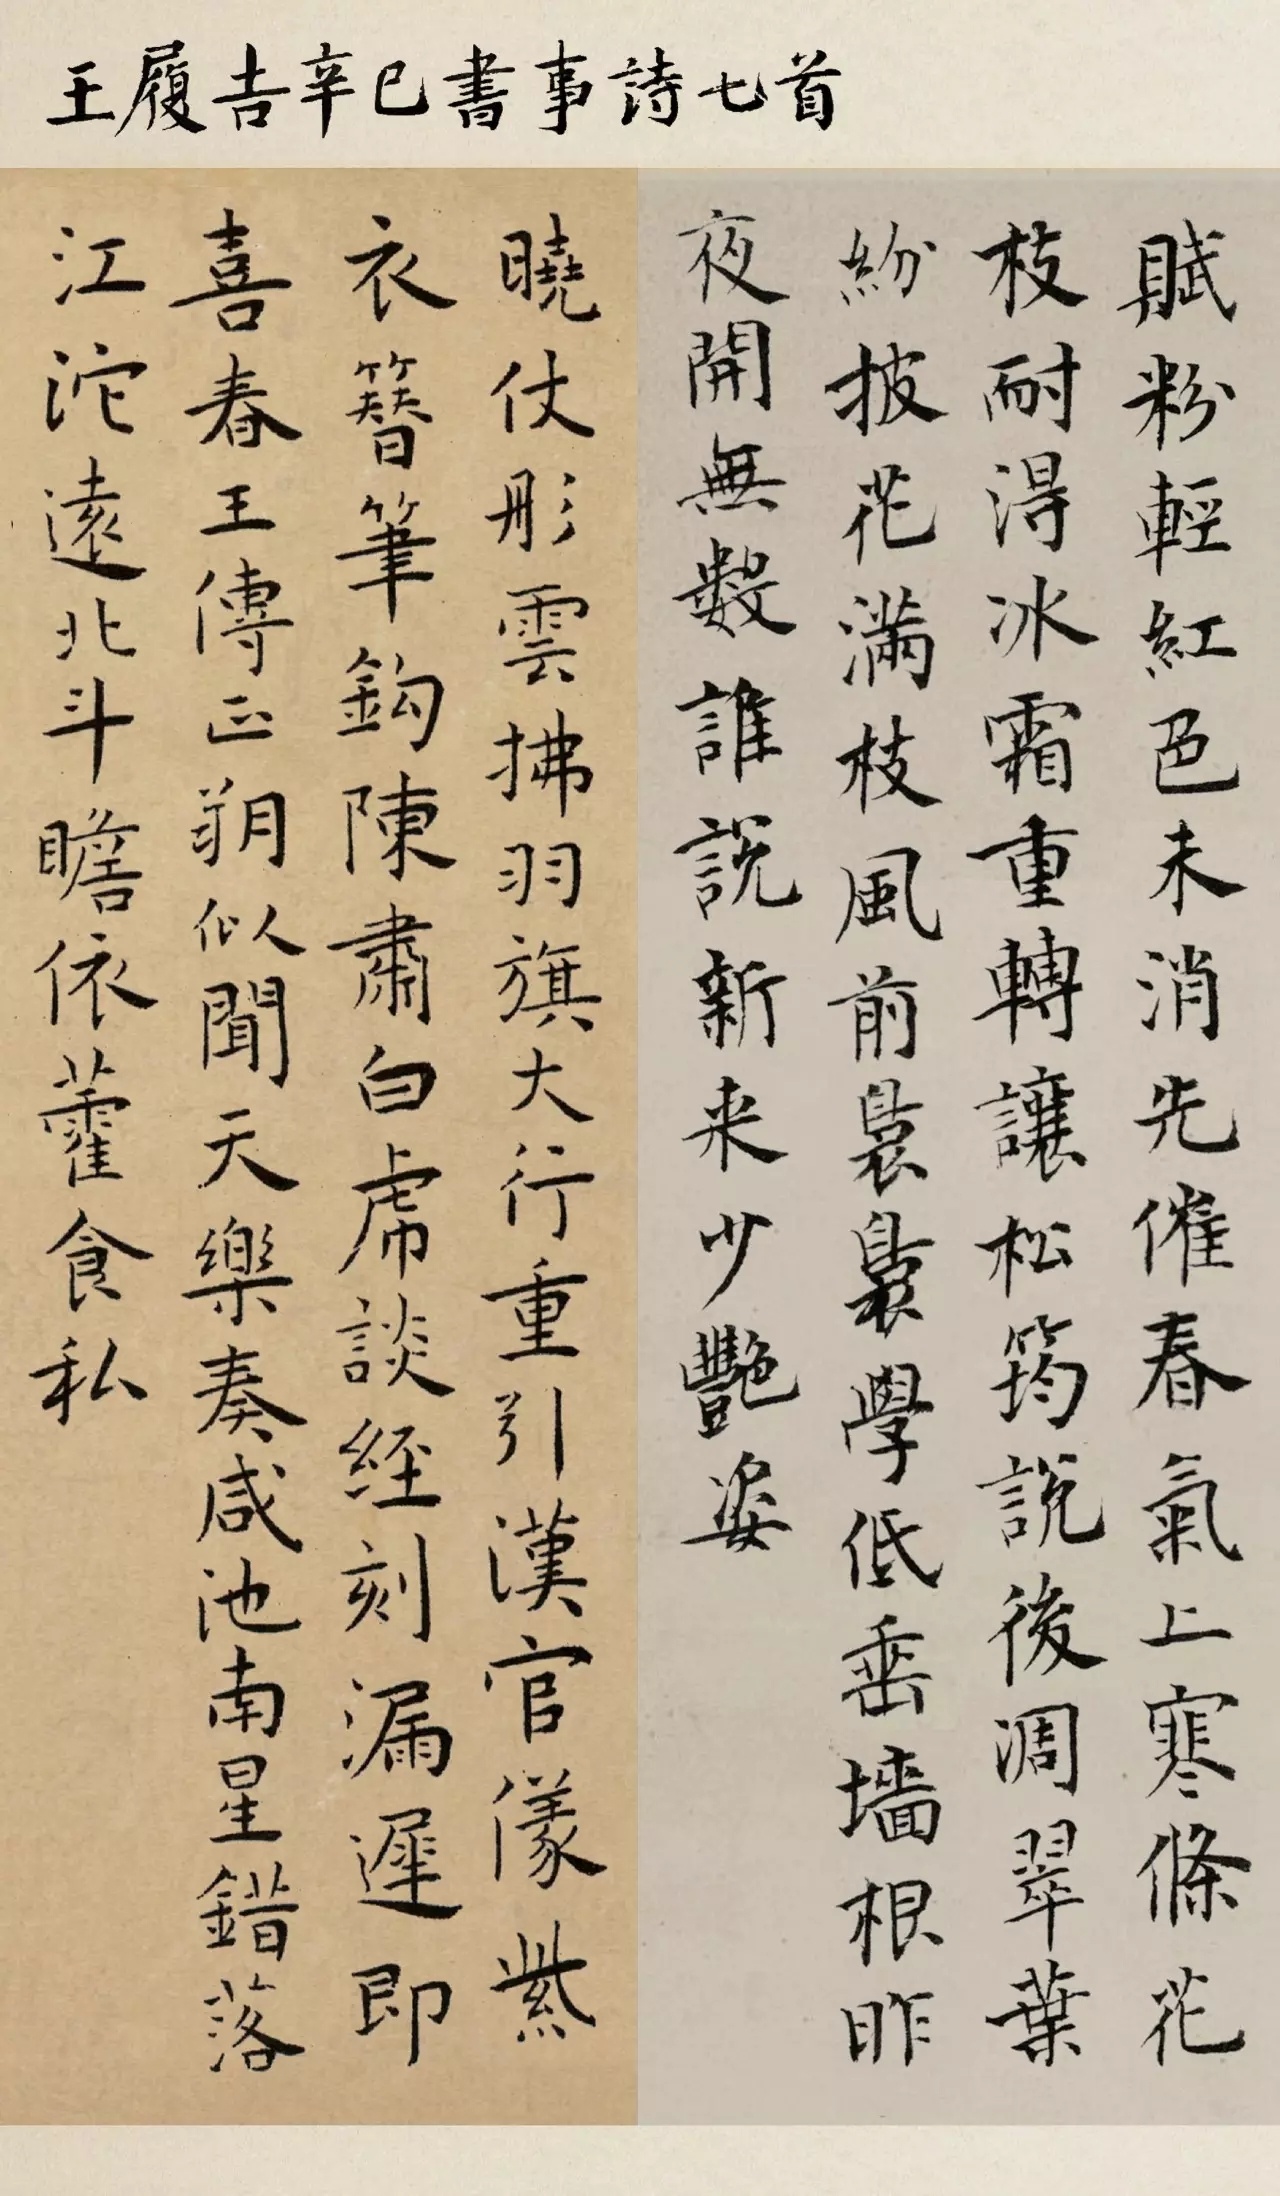 王履吉辛巳書事詩七首
賦粉輕紅色未消先催春氣上寒條花
枝耐得冰霜重轉讓松筠說後凋翠葉
紛披花滿枝風前裊裊學低垂墻根昨
夜開無數誰說新来少艷姿
曉仗彤雲拂羽旗大行重引漢官儀紫
衣簪筆鈎陳肅白虎談經刻漏遲即
喜春王傳正朔似聞天樂奏咸池南星錯落
江沱遠北斗瞻依藿食私